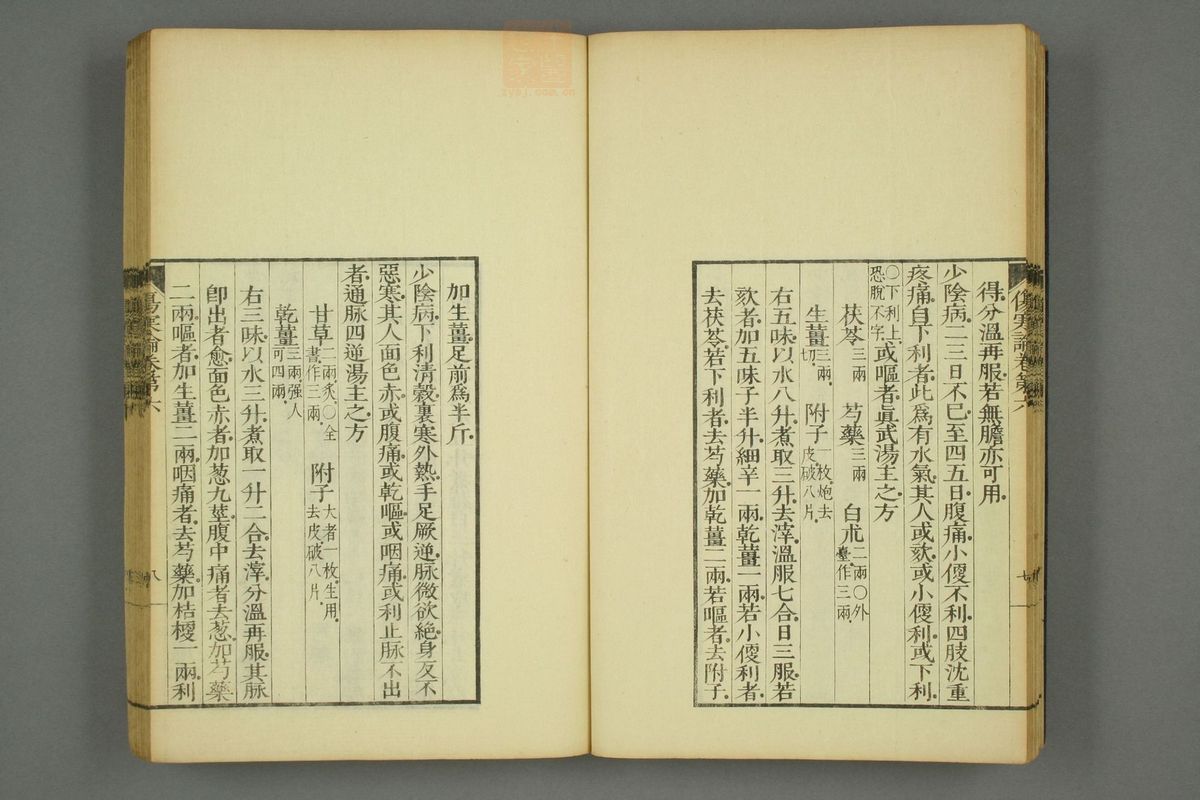 得分溫再服若無膽亦可用
少陰病二三日不已至四五日腹痛小便不利四肢沈重
疼痛自下利者此爲有水氣其人或欬或小便利或下利
〇下利上恐脫不字或嘔者眞武湯主之方
茯苓三兩 芍藥三兩 白朮二兩〇外臺作三兩
生薑三兩切 附子一枚炮去皮破八片
右五味以水八升煮取三升去滓溫服七合日三服若
欬者加五味子半升細辛一兩乾薑一兩若小便利者
去茯苓若下利者去芍藥加乾薑二兩若嘔者去附子
加生薑足前爲半斤
少陰病下利清穀裏寒外熱手足厥逆脉微欲絶身反不
惡寒其人面色赤或腹痛或乾嘔或咽痛或利止脉不出
者通脉四逆湯主之方
甘草二兩炙〇全書作三兩 附子大者一枚生用去皮破八片
乾薑三兩强人可四兩
右三味以水三升煮取一升二合去滓分溫再服其脉
卽出者愈面色赤者加葱九莖腹中痛者去葱加芍藥
二兩嘔者加生薑二兩咽痛者去芍藥加桔梗一兩利
傷寒論卷第六
七
傷寒論卷第六
八
zysj.com.cn